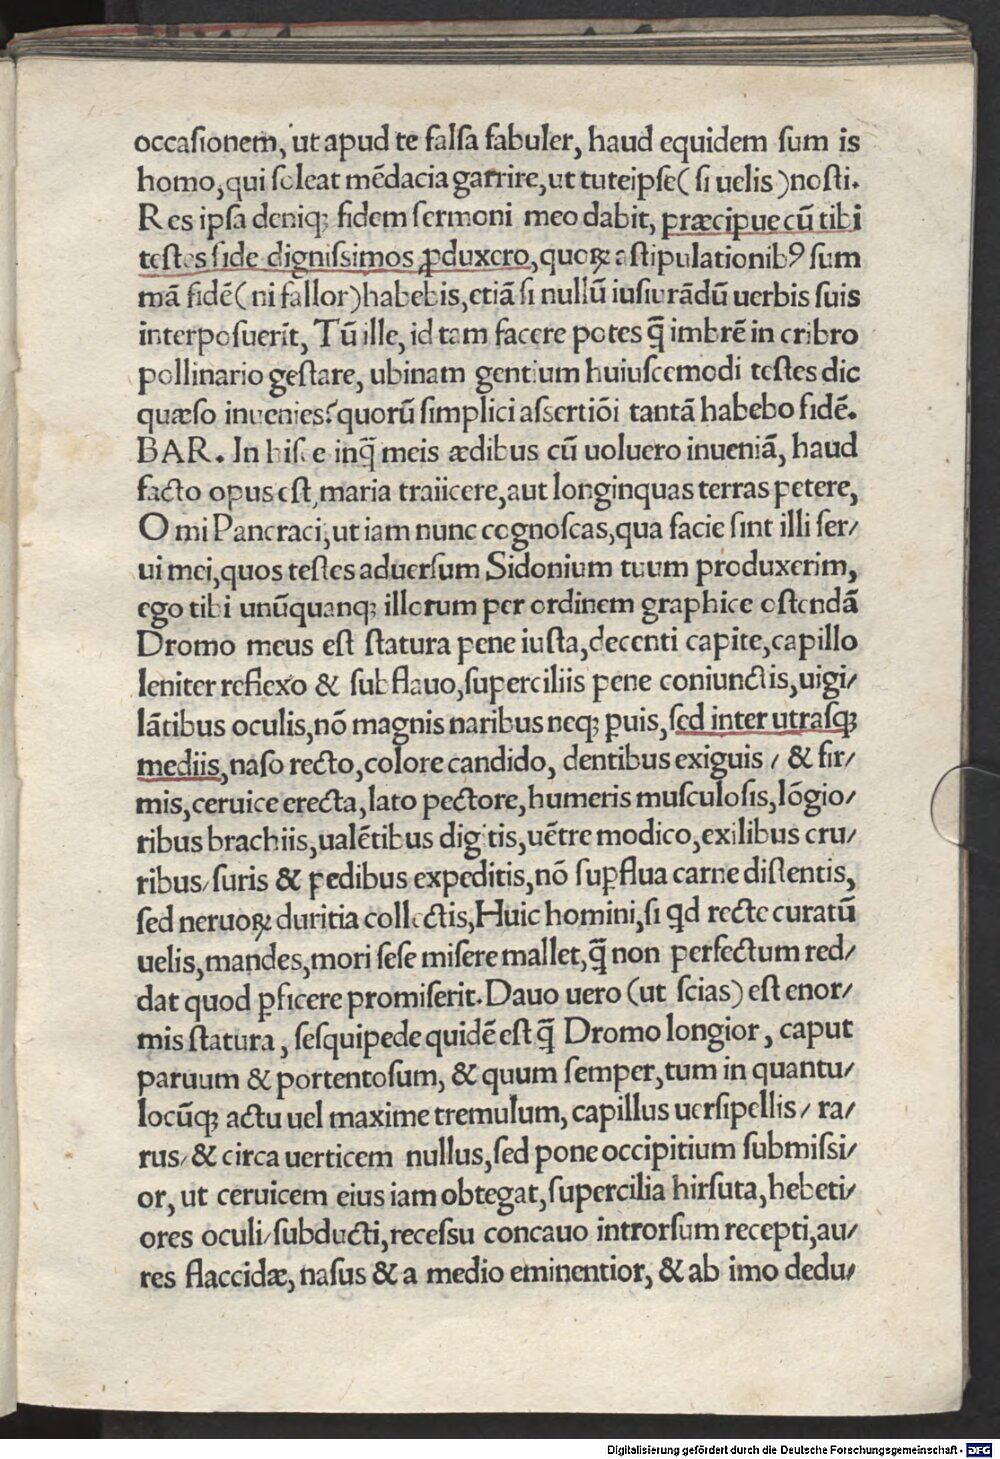 occaſionem, ut apud te falſa fabuler, haud equidem ſum is
homo, qui ſoleat mẽdacia garrire, ut tuteipſe( ſi uelis )noſti.
Res ipſa deniqꝫ fidem ſermoni meo dabit, præcipue cũ tibi
teſtes fide digniſsimos ꝓduxero, quoꝝ aſtipulationibꝰ ſum
mã fidẽ( ni fallor)habebis, etiã ſi nullũ iuſiurãdũ uerbis ſuis
interpoſuerĩt, Tũ ille, id tam facere potes q̃ imbrẽ in cribro
pollinario geſtare, ubinam gentium huiuſcemodi teſtes dic
quæſo inuenies? quorũ ſimplici aſsertiõi tantã habebo fidẽ.
BAR. In hiſce inq̃ meis ædibus cũ uoluero inueniã, haud
facto opus eſt, maria traiicere, aut longinquas terras petere,
O mi Pancraci, ut iam nunc cognoſcas, qua facie ſint illi ſer/
ui mei, quos teſtes aduerſum Sidonium tuum produxerim,
ego tibi unũquanqꝫ illorum per ordinem graphice oſtendã
Dromo meus eſt ſtatura pene iuſta, decenti capite, capillo
leniter reflexo & ſubflauo, ſuperciliis pene coniunctis, uigi/
lãtibus oculis, nõ magnis naribus neqꝫ ꝑuis, ſed inter utraſqꝫ
mediis, naſo recto, colore candido, dentibus exiguis / & fir/
mis, ceruice erecta, lato pectore, humeris muſculoſis, lõgio/
ribus brachiis, ualẽtibus digitis, uẽtre modico, exilibus cru/
ribus/ ſuris & pedibus expeditis, nõ ſuꝑflua carne diſtentis,
ſed neruoꝝ duritia collectis, Huic homini, ſi qd recte curatũ
uelis, mandes, mori ſeſe miſere mallet, q̃ non perfectum red/
dat quod ꝑficere promiſerit. Dauo uero (ut ſcias) eſt enor/
mis ſtatura, ſeſquipede quidẽ eſt q̃ Dromo longior, caput
paruum & portentoſum, & quum ſemper, tum in quantu/
locũqꝫ actu uel maxime tremulum, capillus uerſipellis / ra/
rus/ & circa uerticem nullus, ſed pone occipitium ſubmiſsi/
or, ut ceruicem eius iam obtegat, ſupercilia hirſuta, hebeti/
ores oculi/ ſubducti, receſsu concauo introrſum recepti, au/
res flaccidæ, naſus & a medio eminentior, & ab imo dedu/
Digitalisierung gefördert durch die Deutsche Forschungsgemeinschaft - DFG